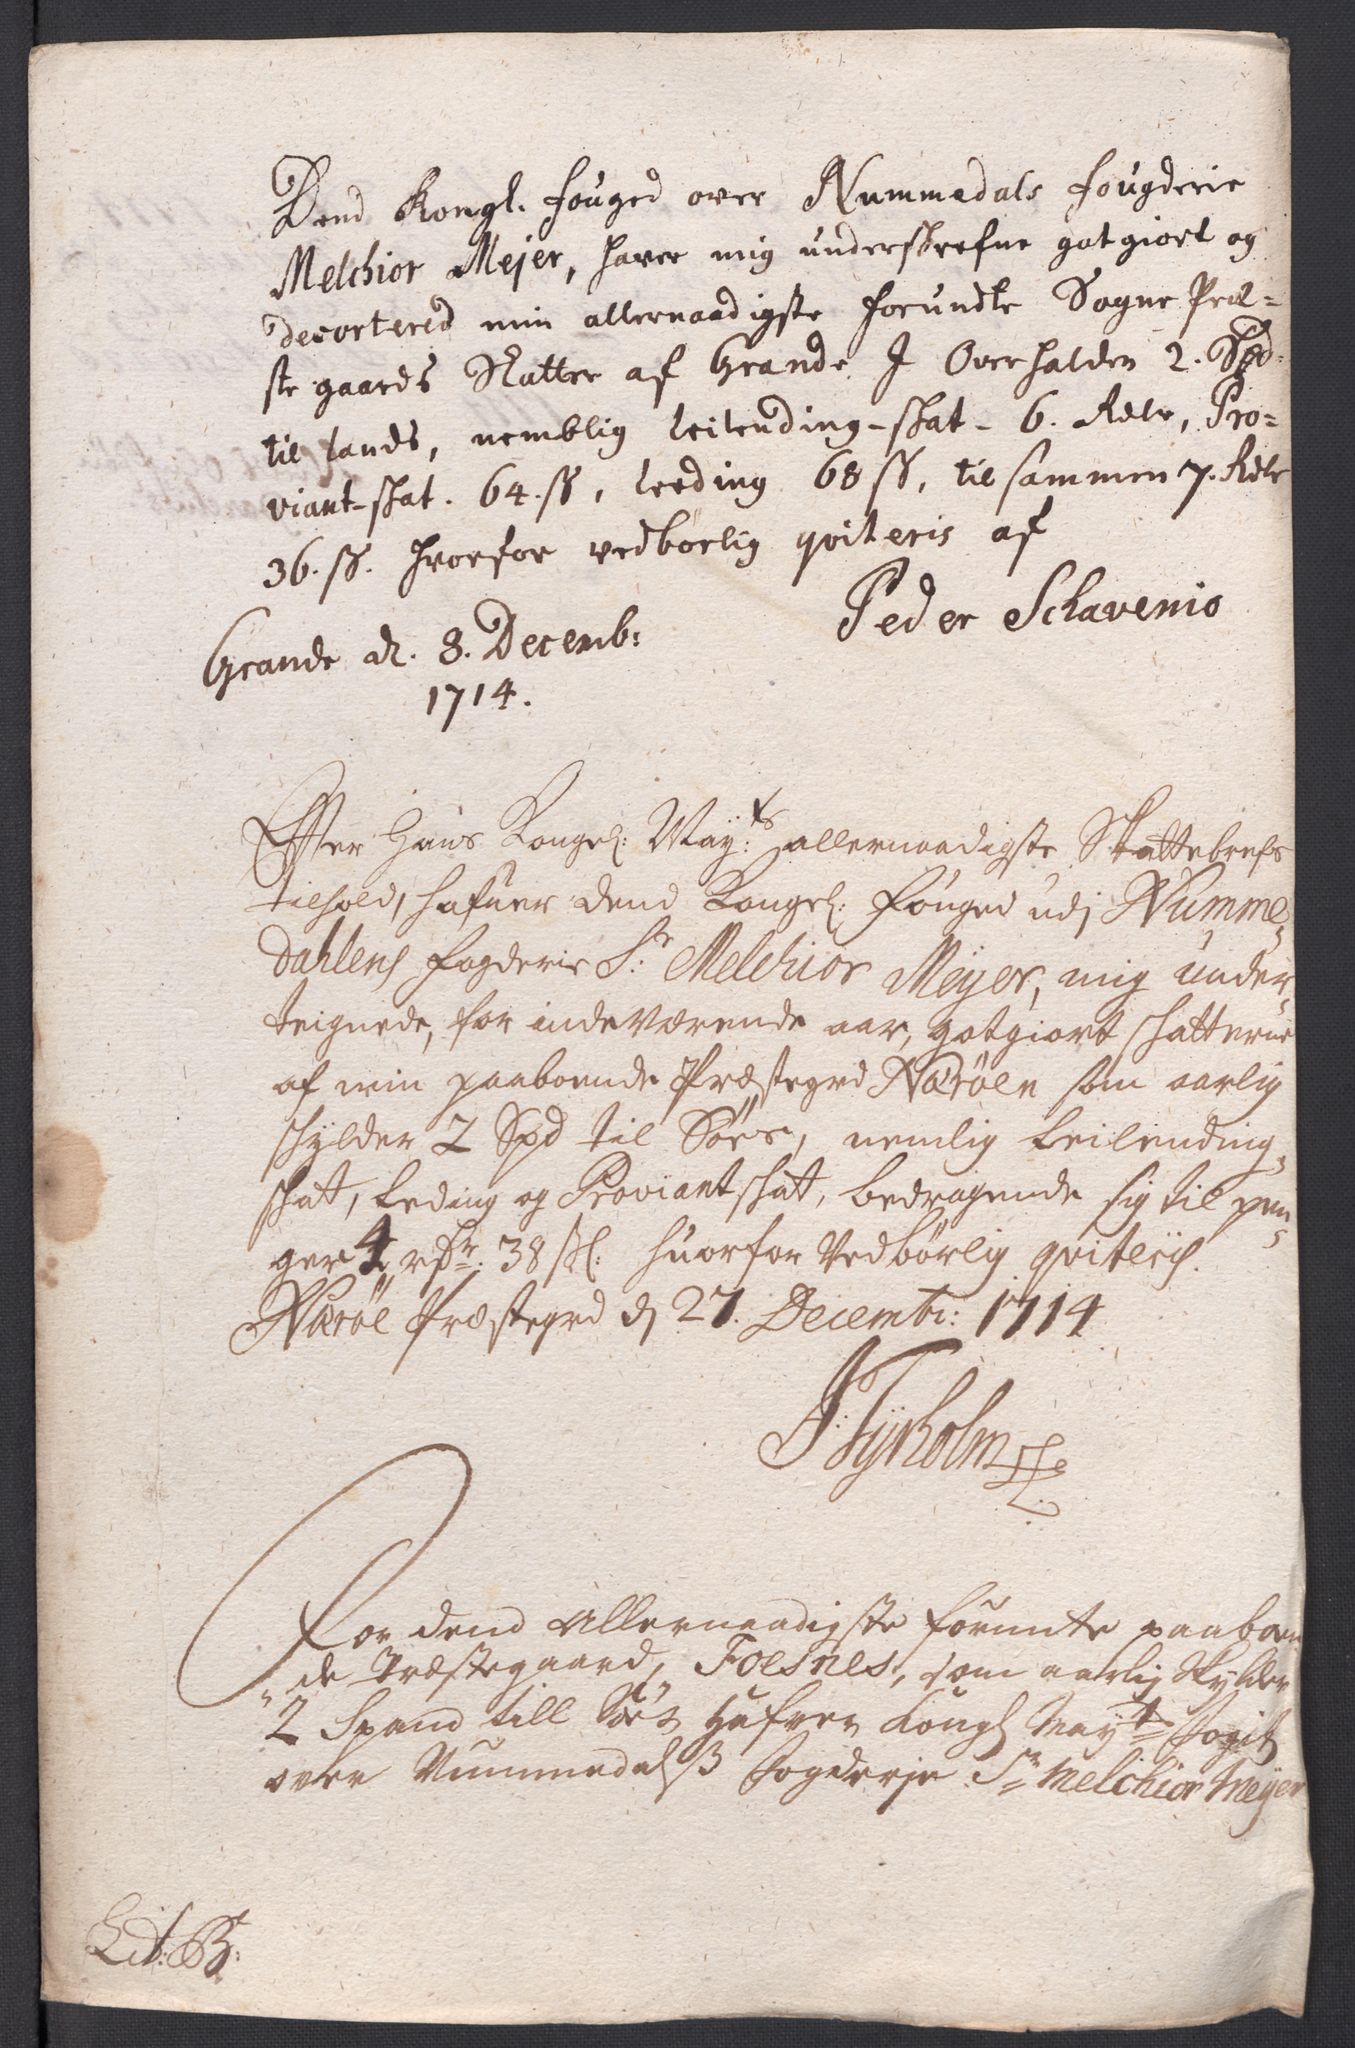 Dend Kongl. fouged over Nummedals fougderie
Melchior Mejer, haver mig underskrefne gotgiort og
decortered min allernaadigste forundte Sogne Præ-
ste gaards Skatter af Grande J Overhalden 2. Spd.
til lands, nemblig leilending-skat- 6. Rdlr, Pro-
viant-skat. 64. ß, leeding 68 ß, til sammen 7. Rdlr
36. ß. hvorfor vedbørlig qviteris af
Peder Schavenio
Grande d. 8. Decemb:
1714.
Efter Hans Kongel: May:ts allernaadigste Skattebrefs
tilhold, hafuer dend Kongel: Fouged udj Numme-
dahlens fogderie Sr: Melchior Meyer, mig under-
teignede, for indeværende aar, gotgiort skatterne
af min paaboende Præstegrd Nærøen som aarlig
skylder 2 Spd til Søes, nemlig Leilending-
skat, Leding og Proviantskat, bedragende sig til pen-
ger 4 rdr: 38 ßl: huorfor Vedbørlig qviteris.
Nærøe Præstegrd d 27. Decembr: 1714
J: Tyrholm
For dend Allernaadigste forunte paaboen
de Præstegaard, Foesnes, som aarlig skylder
2 Spand till Søes Hafver Kongl Mayts Fogit
over Nummedalß Fogderje Sr Melchior Meyer
Lit: B: